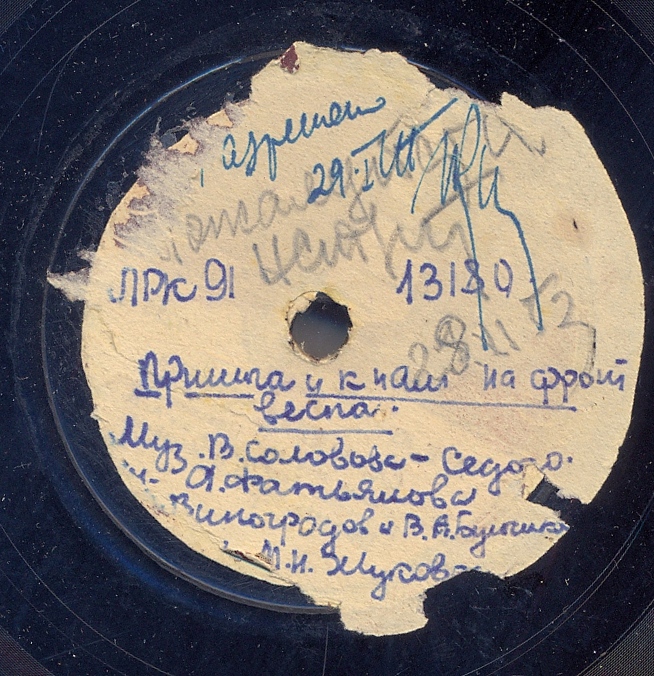 азрешено
29.III
ЛРК 91 13180
28.II 53
Пришла и к нам на фронт
весна.
Муз. В. Соловьева-Седого.
А. Фатьянова
Виноградов и В. А. Бунчиков
М. И. Жукова